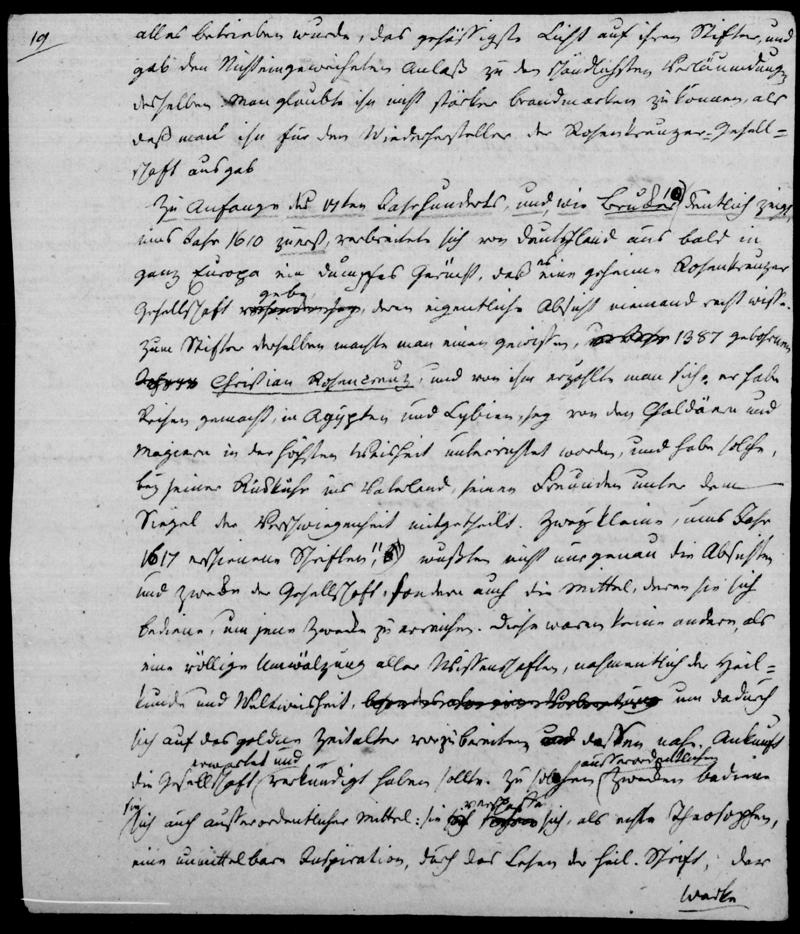 19
alles betrieben wurde, das gehässigste Licht auf ihren Stifter, und
gab den Nichteingeweiheten Anlaß zu den schändlichsten Verläumdungen
desselben. Man glaubte ihn nicht stärker brandmarken zu können, als
daß man ihn für den Wiederhersteller der Rosenkreuzer-Gesell-
schaft ausgab
Zu Anfange des 17ten Jahrhunderts, und, wie Brucker 10) deutlich zeigt,
ums Jahr 1610 zuerst, verbreitete sich von Deutschland aus bald in
ganz Europa ein dumpfes Gerücht, daß es eine geheime Rosenkreuzer
gebe,
Gesellschaft vorhanden sey, deren eigentliche Absicht niemand recht wisse.
Zum Stifter derselben machte man einen gewissen, 1387 gebohrnen
Christian Rosencreuz, und von ihm erzählte man sich, er habe
Reisen gemacht, in Agypten und Lybien, sey von den Chaldäern und
Magiern in der höchsten Weisheit unterrichtet worden, und habe solche,
bey seiner Rückkehr ins Vaterland, seinen Freunden unter dem
Siegel der Verschwiegenheit mitgetheilt. Zwey kleine, ums Jahr
1617 erschienene Schriften 11) wußten nicht nur genau die Absichten
und Zwecke der Gesellschaft, sondern auch die Mittel, deren sie sich
bediene, um jene Zwecke zu erreichen. Diese waren keine andern, als
eine völlige Umwälzung aller Wissenschaften, nahmentlich der Heil-
kunde und Weltweisheit, um dadurch
sich auf das goldne Zeitalter vorzubereiten dessen nahe Ankunft
erwartet und ausserordentlichen
die Gesellschaft verkündigt haben sollte. Zu solchen Zwecken bediene
sie sich auch ausserordentlicher Mittel: sie sich, als ächte Theosophen,
eine unmittelbare Inspiration, durch das Lesen der heil. Schrift, der
Werke